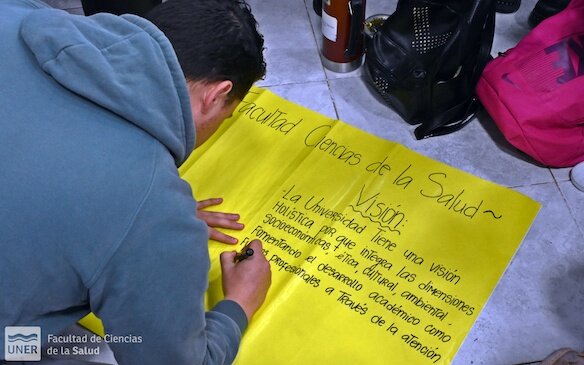 Facultad Ciencias de la Salud ~
Visión:
-La Universidad tiene una visión
Holística por que integra las dimensiones
socioeconómicas, ética, cultural, ambiental.
Fomentando el desarrollo académico como
profesionales a través de la atención
UNER
Facultad de Ciencias
de la Salud